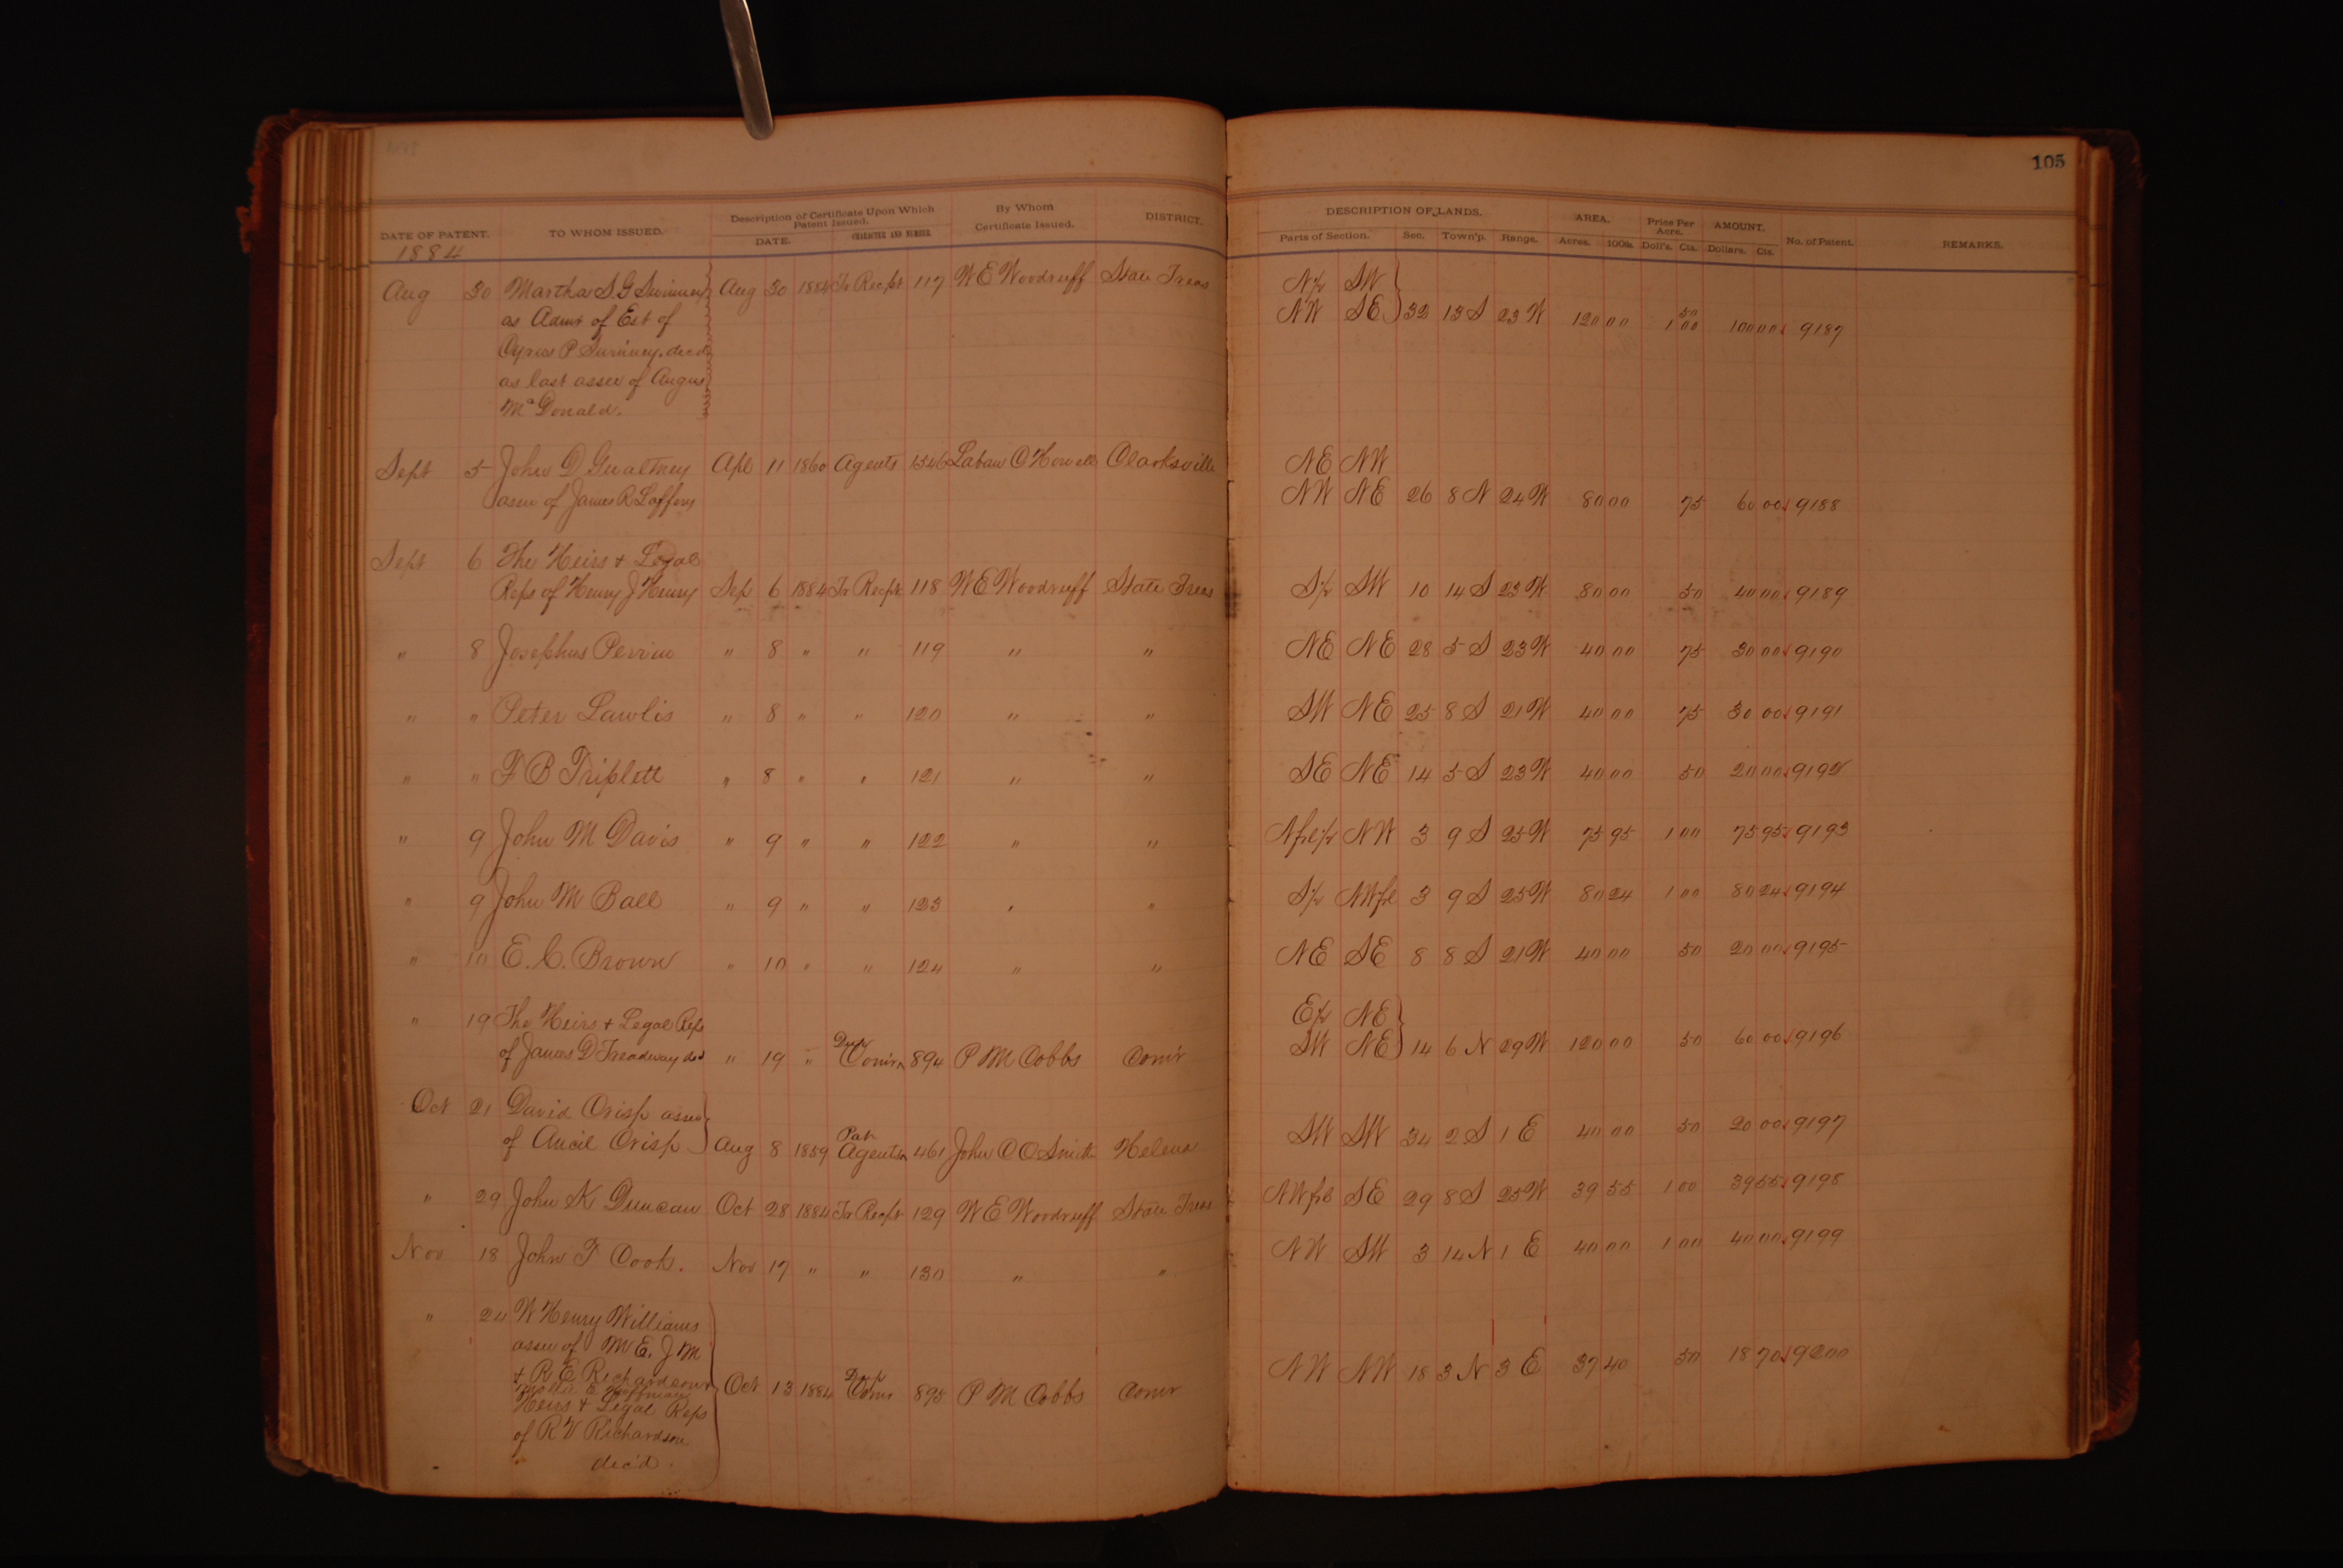 105
DATE OF PATENT. TO WHOM ISSUED. Description of Certificate Upon Which Patent Issued. DATE. CHARACTER AND NUMBER. By Whom Certificate Issued. DISTRICT. DESCRIPTION OF LANDS. Parts of Section. Sec. Town'p. Range. AREA. Acres. 100ths. Price Per Acre. Doll's. Cts. AMOUNT. Dollars. Cts. No. of Patent. REMARKS.
1884
Aug 30 Martha S. G Swinney Aug 30 1884 Tr Recpt 117 W E Woodruff State Treas N½ SW
as Admr of Est of NW SE 32 13 S 23 W 120 00 50 1 00 100 00 9187
Cyrus P Swinney, decd
as last assee of Angus
McDonald.
Sept 5 John D Gwaltney Apl 11 1860 Agents 1546 Laban C Howell Clarksville NE NW
assee of James R Laffery NW NE 26 8 N 24 W 80 00 75 60 00 9188
Sept 6 The Heirs & Legal
Reps of Henry J Henry Sep 6 1884 Tr Recpt 118 W E Woodruff State Treas S½ SW 10 14 S 23 W 80 00 50 40 00 9189
" 8 Josephus Perrin " 8 " " 119 " " NE NE 28 5 S 23 W 40 00 75 30 00 9190
" " Peter Lawlis " 8 " " 120 " " SW NE 25 8 S 21 W 40 00 75 30 00 9191
" " F B Triplett " 8 " " 121 " " SE NE 14 5 S 23 W 40 00 50 20 00 9192
" 9 John M Davis " 9 " " 122 " " N frl ½ NW 3 9 S 25 W 75 95 1 00 75 95 9193
" 9 John M Ball " 9 " " 123 " " S½ NW frl 3 9 S 25 W 80 24 1 00 80 24 9194
" 10 E. C. Brown " 10 " " 124 " " NE SE 8 8 S 21 W 40 00 50 20 00 9195
" 19 The Heirs & Legal Reps E½ NE
of James D Treadway decd " 19 " Dup Comrs 894 P M Cobbs Comr SW NE 14 6 N 29 W 120 00 50 60 00 9196
Oct 21 David Crisp assee
of Ancil Crisp Aug 8 1859 Pat Agents 461 John C O Smith Helena SW SW 34 2 S 1 E 40 00 50 20 00 9197
" 29 John K Duncan Oct 28 1884 Tr Recpt 129 W E Woodruff State Treas NW frl SE 29 8 S 25 W 39 55 1 00 39 55 9198
Nov 18 John F Cook. Nov 17 " " 130 " " NW SW 3 14 N 1 E 40 00 1 00 40 00 9199
" 24 W Henry Williams
assee of M E, J M
& R E Richardson
E Hoffman
Heirs & Legal Reps Oct 13 1884 Dup Comr 895 P M Cobbs Comr NW NW 18 3 N 3 E 37 40 50 18 70 9200
of R V Richardson
dec'd.